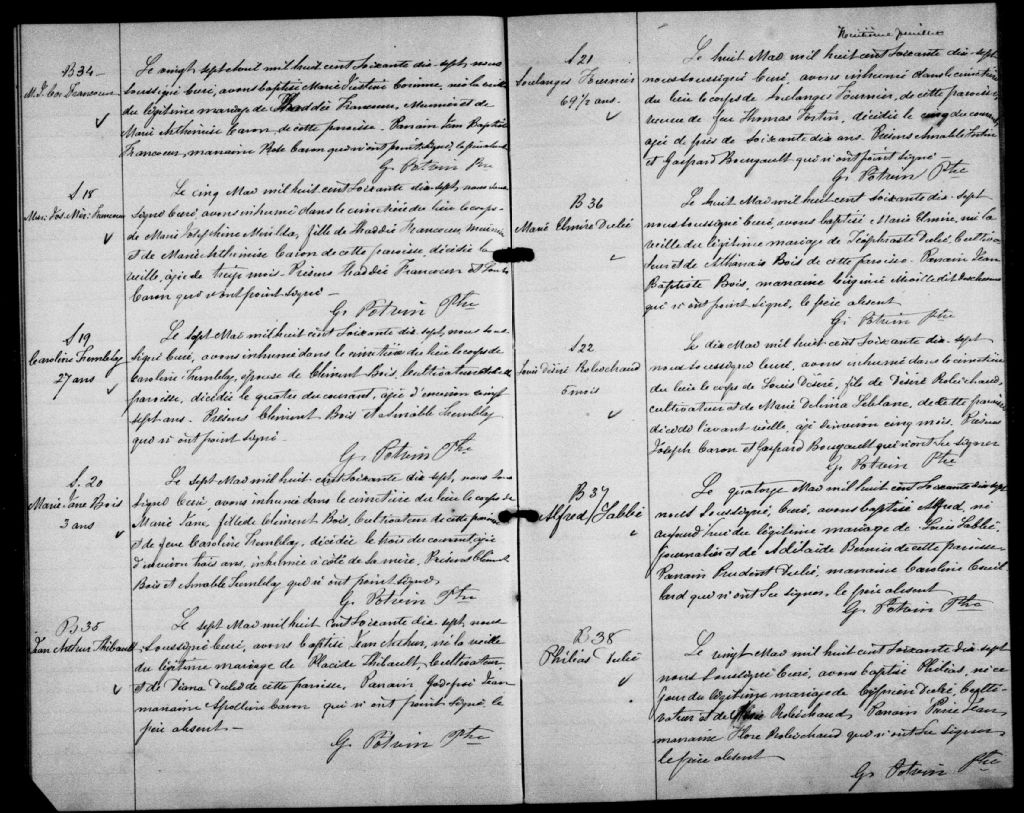 B 34
M. J. Cor Francoeur
Le vingt sept Avril mil huit cent Soixante dix-sept, nous
Soussigné Curé, avons baptisé Marie Justine Corinne, née la veille
du légitime mariage de Thaddée Francoeur, Meunier et de
Marie Arthémise Caron de cette paroisse. Parrain Jean Baptiste
Francoeur, marraine Rose Caron qui n'ont point signé, le père absent
G. Potvin Ptre
S 18
Mari Jos. Mér. Francoeur
Le cinq Mai mil huit cent Soixante dix sept, nous sous
signé Curé, avons inhumé dans le cimetière du lieu le corps
de Marie Josephine, fille de Thaddée Francoeur, meunier
et de Marie Arthémise Caron de cette paroisse, décédée la
veille, agée de treize mois. Présens Thaddée Francoeur et
Caron qui n'ont point signé
G. Potvin Ptre
S 19
Caroline Tremblay
27 ans
Le sept Mai mil huit cent Soixante dix sept, nous sous
signé Curé, avons inhumé dans le cimetière du lieu le corps de
Caroline Tremblay, épouse de Clément Bois, Cultivateur de cette
paroisse, décédée le quatre du courant, agée d'environ vingt
sept ans. Présens Clément Bois et Aimable Tremblay
qui n'ont point signé
G. Potvin Ptre
S. 20
Marie Jane Bois
3 ans
Le sept Mai mil huit cent Soixante dix sept, nous sous
signé Curé, avons inhumé dans le cimetière du lieu le corps de
Marie Jane, fille de Clément Bois, Cultivateur de cette paroisse
et de feue Caroline Tremblay, décédée le trois du courant agée
d'environ trois ans, inhumée à côté de sa mère, Présens Clément
Bois et Aimable Tremblay qui n'ont point signé.
G. Potvin Ptre
B 35
Jean Arthur Thibault
Le sept Mai mil huit cent Soixante dix sept, nous
Soussigné Curé, avons baptisé Jean Arthur, né la veille
du légitime mariage de Placide Thibault, Cultivateur
et de Diana Dubé de cette paroisse. Parrain Godefroi Jean
marraine Apolline Caron qui n'ont point signé, le
père absent
G. Potvin Ptre
Huitième feuillet
S 21
Soulanges Fournier
69 1/2 ans.
Le huit Mai mil huit cent Soixante dix-sept
nous soussigné Curé, avons inhumé dans le cimetière
du lieu le corps de Soulanges Fournier, de cette paroisse
veuve de feu Thomas Fortin, décédée le cinq du courant
agée de près de Soixante dix ans. Présens Aimable Fortin
et Gaspard Bourgault qui n'ont point signé
G. Potvin Ptre
B 36
Marie Elmire Dubé
Le huit Mai mil huit cent Soixante dix-sept
nous soussigné Curé, avons baptisé Marie Elmire, née la
veille du légitime mariage de Téophraste Dubé, Cultiva
teur et de Athanais Bois de cette paroisse. Parrain Jean
Baptiste Bois, marraine Virginie Miville dit Deschenes
qui n'ont point signé, le père absent
G. Potvin Ptre
S 22
Louis Désiré Robichaud
5 mois
Le dix Mai mil huit cent Soixante dix-sept
nous soussigné Curé, avons inhumé dans le cimetière
du lieu le corps de Louis Désiré, fils de Désiré Robichaud,
cultivateur et de Marie Delima Leblanc, de cette paroisse
décédé l'avant-veille, agé d'environ cinq mois. Présens
Joseph Caron et Gaspard Bourgault qui n'ont su signer
G. Potvin Ptre
B 37
Alfred Labbé
Le quatorze Mai mil huit cent Soixante dix-sept
nous Soussigné, Curé, avons baptisé Alfred, né
aujourd'hui du légitime mariage de Louis Labbé
Journalier et de Adélaide Bernier de cette paroisse
Parrain Prudent Dubé, marraine Caroline Couil
lard qui n'ont su signer, le père absent
G. Potvin Ptre
B 38
Philéas Dubé
Le vingt Mai mil huit cent Soixante dix-sept
nous Soussigné Curé, avons baptisé Philéas, né ce
jour du légitime mariage de Cyprien Dubé, Culti
vateur et de Robichaud, Parrain Jean
marraine Flore Robichaud qui n'ont su signer
le père absent
G. Potvin Ptre